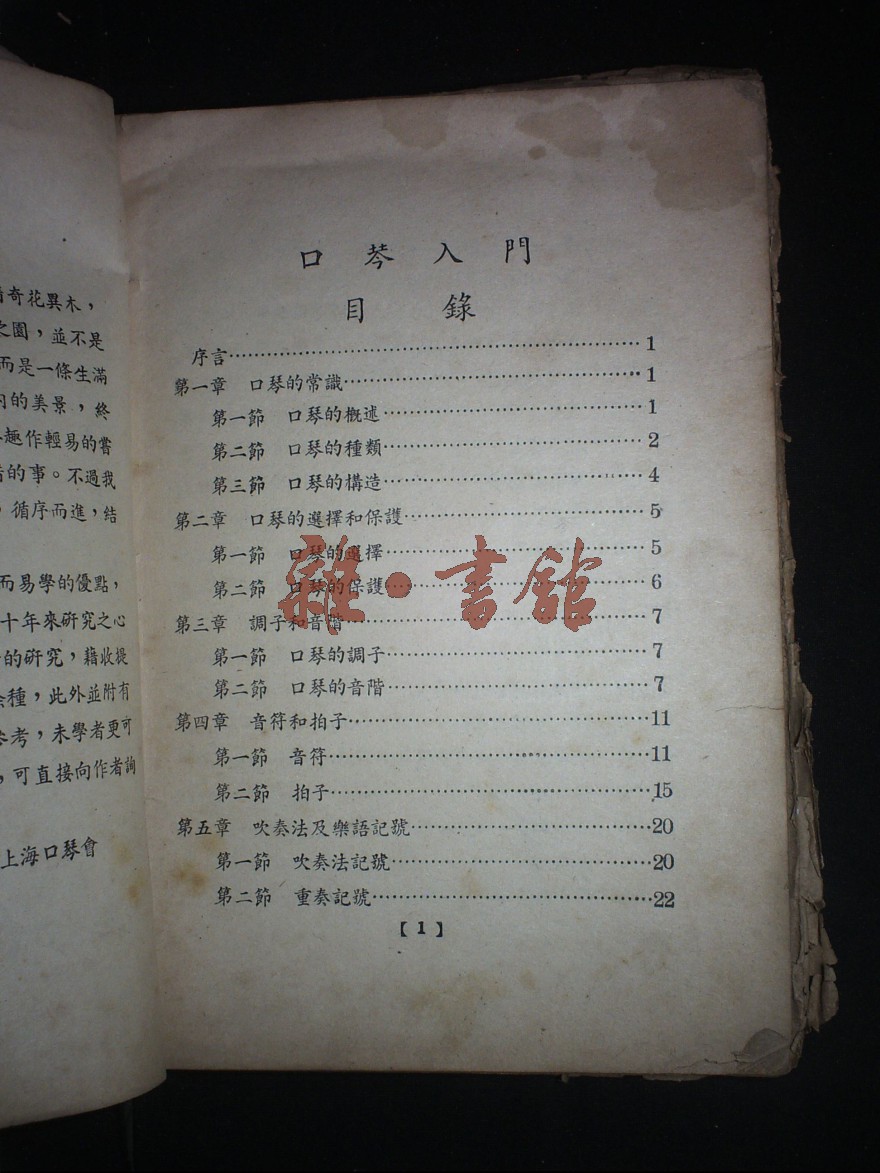 奇花異木，
之園，並不是
而是一條生滿
的美景，終
趣作輕易的嘗
的事。不過我
，循序而進，結
而易學的優點，
十年來研究之心
的研究，藉收提
種，此外並附有
參考，未學者更可
，可直接向作者詢
上海口琴會
口琴入門
目錄
序言……1
第一章 口琴的常識……1
第一節 口琴的概述……1
第二節 口琴的種類……2
第三節 口琴的構造……4
第二章 口琴的選擇和保護……5
第一節 口琴的選擇……5
第二節 口琴的保護……6
第三章 調子和音階……7
第一節 口琴的調子……7
第二節 口琴的音階……7
第四章 音符和拍子……11
第一節 音符……11
第二節 拍子……15
第五章 吹奏法及樂語記號……20
第一節 吹奏法記號……20
第二節 重奏記號……22
【1】
雜·書館